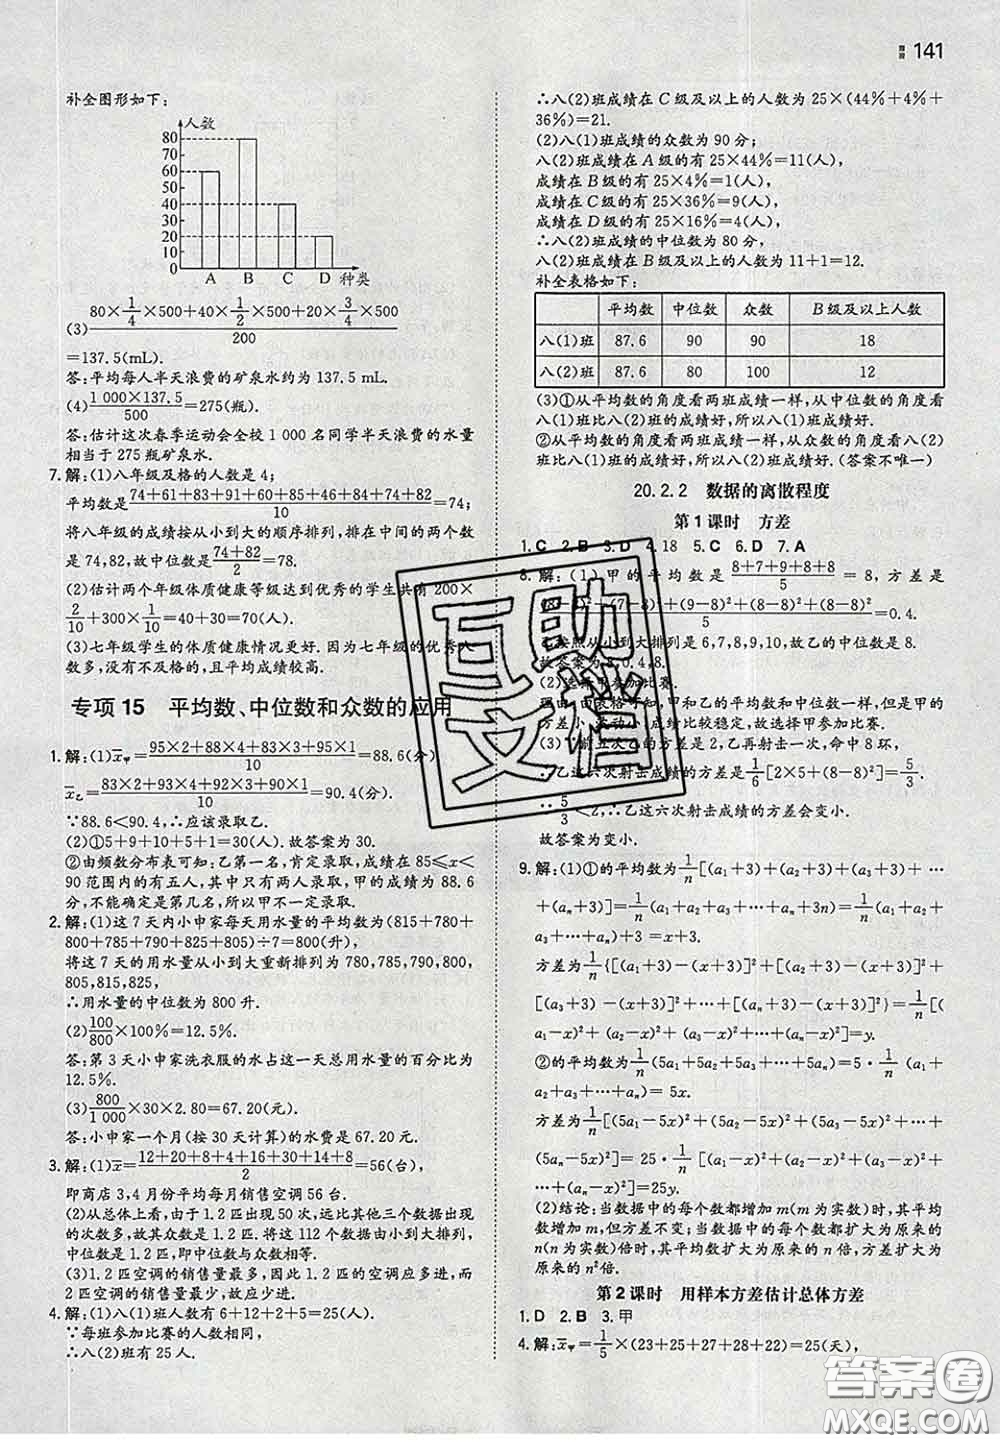 数据 141
补全图形如下:
人数
80
70
60
50
40
30
20
10
0
A B C D 种类
(3)(80×1/4×500+40×1/2×500+20×3/4×500)/200
=137.5(mL).
答:平均每人半天浪费的矿泉水约为 137.5 mL.
(4)(1 000×137.5)/500=275(瓶).
答:估计这次春季运动会全校 1 000 名同学半天浪费的水量
相当于 275 瓶矿泉水.
7. 解:(1)八年级及格的人数是 4;
平均数是(74+61+83+91+60+85+46+84+74+82)/10=74;
将八年级的成绩按从小到大的顺序排列,排在中间的两个数
是 74,82,故中位数是(74+82)/2=78.
(2)估计两个年级体质健康等级达到优秀的学生共有 200×
2/10+300×1/10=40+30=70(人).
(3)七年级学生的体质健康情况更好.因为七年级的优秀人
数多,没有不及格的,且平均成绩较高.
专项 15 平均数、中位数和众数的应用
1. 解:(1)x̄甲=(95×2+88×4+83×3+95×1)/10=88.6(分)
x̄乙=(83×2+93×4+92×3+90×1)/10=90.4(分).
∵88.6<90.4,∴应该录取乙.
(2)①5+9+10+5+1=30(人).故答案为 30.
②由频数分布表可知:乙第一名,肯定录取,成绩在 85≤x<
90 范围内的有五人,其中只有两人录取,甲的成绩为 88.6
分,不能确定是第几名,所以甲不一定录取.
2. 解:(1)这 7 天内小申家每天用水量的平均数为(815+780+
800+785+790+825+805)÷7=800(升),
将这 7 天的用水量从小到大重新排列为 780,785,790,800,
805,815,825,
∴用水量的中位数为 800 升.
(2)100/800×100%=12.5%.
答:第 3 天小申家洗衣服的水占这一天总用水量的百分比为
12.5%.
(3)800/1 000×30×2.80=67.20(元),
答:小申家一个月(按 30 天计算)的水费为 67.20 元.
3. 解:(1)x̄=(12+20+8+4+16+30+14+8)/2=56(台),
即商店 3,4 月份平均每月销售空调 56 台.
(2)从总体上看,由于 1.2 匹出现 50 次,远比其他三个数据出现
的次数多,故其众数是 1.2 匹.将这 112 个数据从小到大排列,
中位数是 1.2 匹,即中位数与众数相等.
(3)1.2 匹空调的销售量最大,所以 1.2 匹的空调应多进,而
2 匹空调的销售量较少,故应少进.
4. 解:(1)八(1)班人数有 6+12+2+5=25(人),
∵每班参加比赛的人数相同,
∴八(2)班有 25 人.
∴八(2)班成绩在 C 级及以上的人数为 25×(44%+4%+
36%)=21.
(2)八(1)班成绩的众数为 90 分;
八(2)班成绩在 A 级的有 25×44%=11(人),
成绩在 B 级的有 25×4%=1(人),
成绩在 C 级的有 25×36%=9(人),
成绩在 D 级的有 25×16%=4(人),
∴八(2)班成绩的中位数为 80 分,
∴八(2)班成绩在 B 级及以上的人数为 11+1=12.
补全表格如下:
平均数 中位数 众数 B 级及以上人数
八(1)班 87.6 90 90 18
八(2)班 87.6 80 100 12
(3)①从平均数的角度看两班成绩一样,从中位数的角度看
八(1)班比八(2)班的成绩好,所以八(1)班成绩好.
②从平均数的角度看两班成绩一样,从众数的角度看八(2)
班比八(1)班成绩好,所以八(2)班成绩好.(答案不唯一)
20.2.2 数据的离散程度
第 1 课时 方差
1. C 2. B 3. D 4. 18 5. C 6. D 7. A
8. 解:(1)甲的平均数是(8+7+9+8+8)/5=8,方差是
+(7-8)²+(9-8)²+(8-8)²+(8-8)²/5=0.4.
乙按照从小到大排列是 6,7,8,9,10,故乙的中位数是 8.
故答案为 8,0.4,8.
(2)选择甲参加比赛.
理由:由表格可知,甲和乙的平均数和中位数一样,但是甲的
方差小,波动小,成绩比较稳定,故选择甲参加比赛.
(3)∵前五次乙的方差是 2,乙再射击一次,命中 8 环,
∴乙这六次射击成绩的方差是1/6[2×5+(8-8)²]=5/3.
∵5/3<2,∴乙这六次射击成绩的方差会变小.
故答案为变小.
9. 解:(1)①的平均数为1/n[(a₁+3)+(a₂+3)+(a₃+3)+ …
+(aₙ+3)]=1/n(a₁+a₂+a₃+…+aₙ+3n)=1/n(a₁+a₂+
a₃+…+aₙ)+3=x+3.
方差为1/n{[(a₁+3)-(x+3)]²+[(a₂+3)-(x+3)]²+
[(a₃+3)-(x+3)]²+…+[(aₙ+3)-(x+3)]²}=1/n[(
a₁-x)²+(a₂-x)²+(a₃-x)²+…+(aₙ-x)²]=y.
②的平均数为1/n(5a₁+5a₂+5a₃+…+5aₙ)=5·1/n(a₁+
a₂+a₃+…+aₙ)=5x.
方差为1/n[(5a₁-5x)²+(5a₂-5x)²+(5a₃-5x)²+…+
(5aₙ-5x)²]=25·1/n[(a₁-x)²+(a₂-x)²+(a₃-x)²+…+
(aₙ-x)²]=25y.
(2)结论:当数据中的每个数都增加 m(m 为实数)时,其平均
数增加 m,但方差不变;当数据中的每个数都扩大为原来的
n(n 为实数)倍时,其平均数扩大为原来的 n 倍,方差扩大为
原来的 n²倍.
第 2 课时 用样本方差估计总体方差
1. D 2. B 3. 甲
4. 解:x̄甲=1/5×(23+25+27+28+22)=25(天),
互助文档
答案圈
MXQE.COM